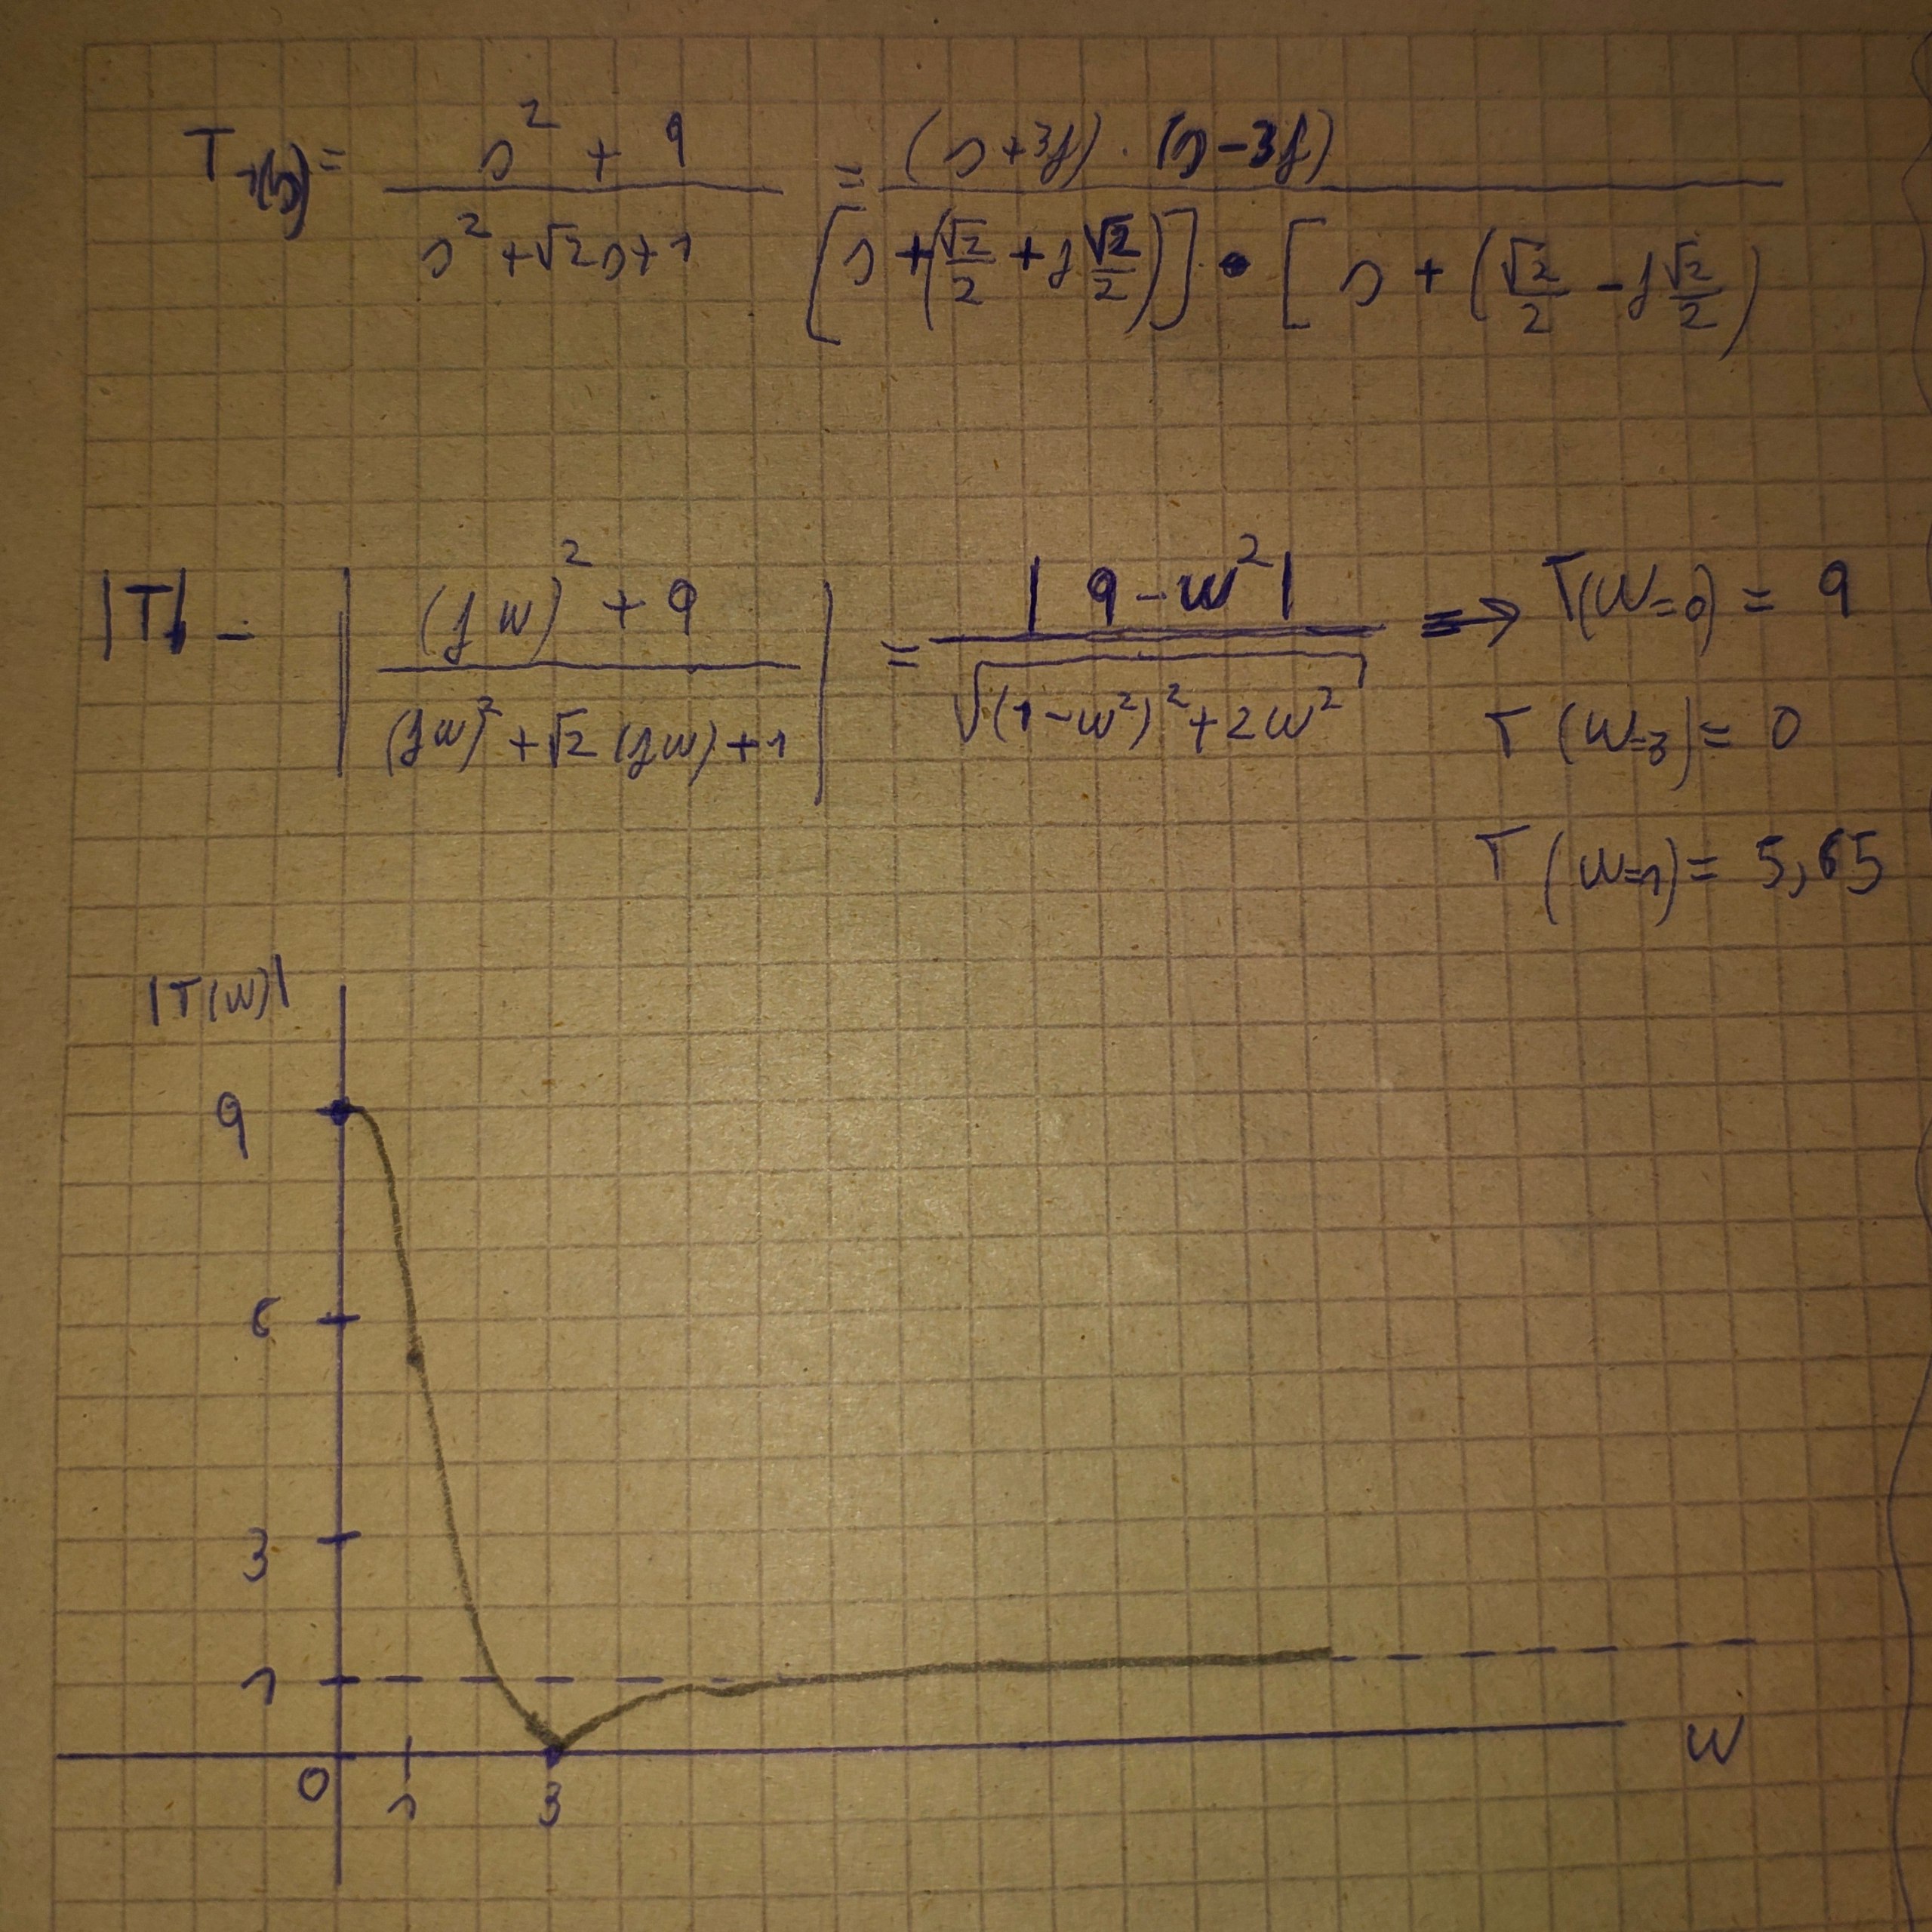 T₁(s) = (s² + 9)/(s² + √2 s + 1) = ((s + 3j) · (s − 3j))/([s + (√2/2 + j √2/2)] · [s + (√2/2 − j √2/2)
|T| − |((jw)² + 9)/((jw)² + √2 (jw) + 1)| = |9 − w²|/√((1 − w²)² + 2w²) ⇒ T(w=0) = 9
T(w=3) = 0
T(w=1) = 5,65
|T(w)|
9
6
3
1
w
0 1 3